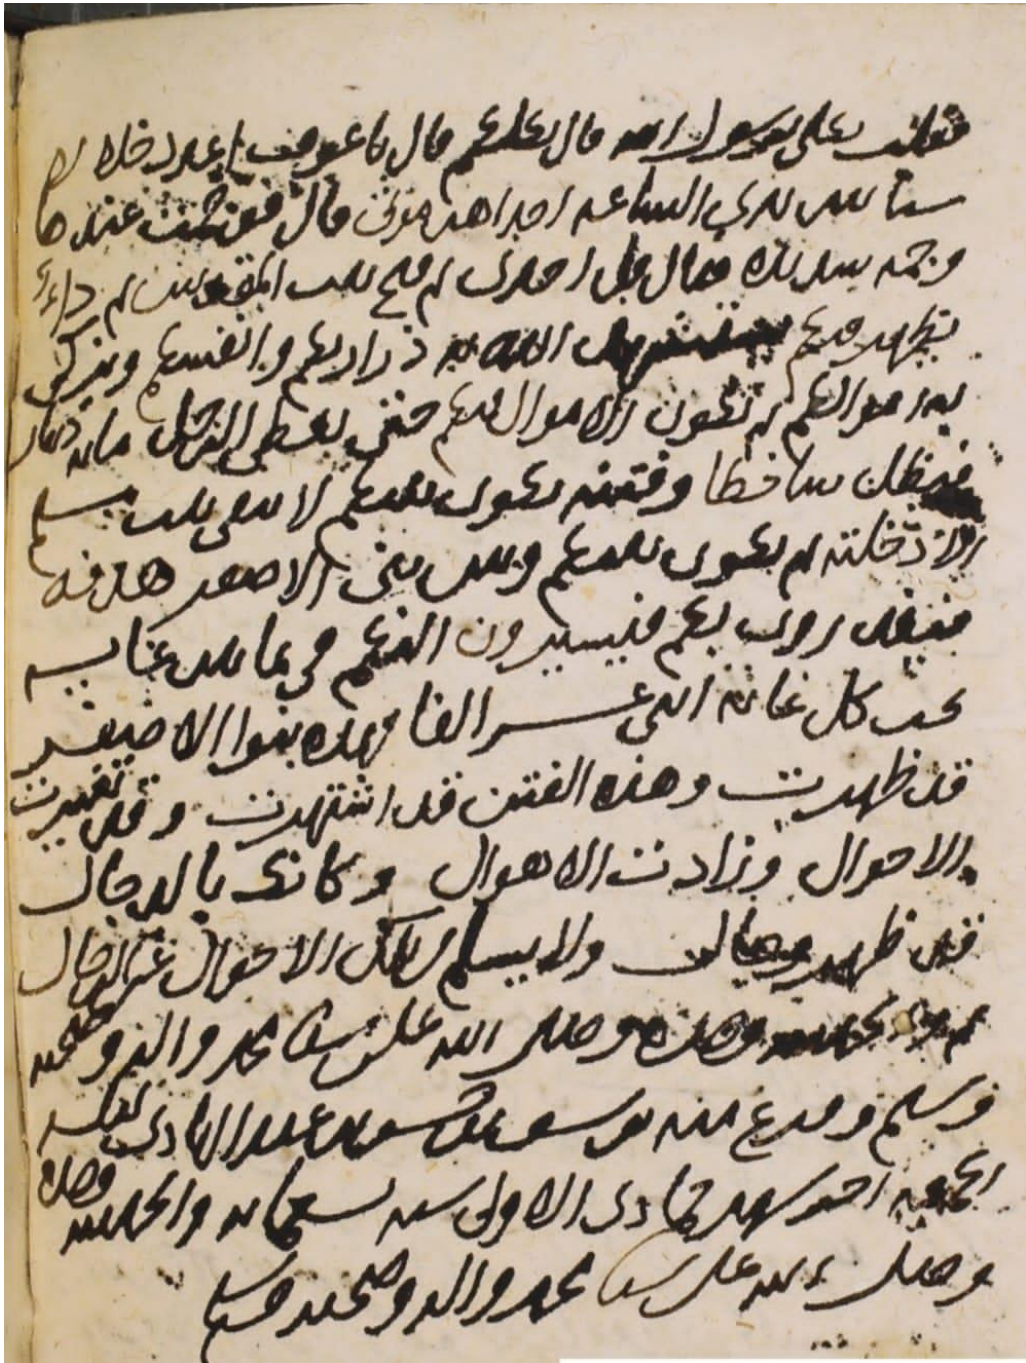 فقلت بكلي يرسول الله قال بكلكم قال يا عوف اعدد خلالا
ستا بين يدي الساعة احداهن موتي قال فوجمت عندها
وجمة شديدة فقال قل احدى ثم فتح بيت المقدس ثم داء
يظهر فيكم يستشهد الله به ذراريكم وانفسكم ويزكي
به اموالكم ثم تكون الاموال فيكم حتى يعطى الرجل ماية دينار
فيظل ساخطا وفتنة تكون بينكم لا يبقى بيت مسلم
الا دخلته ثم يكون بينكم وبين بني الاصفر هدنة
فيغدرون بكم فيسيرون اليكم في ثمانين غاية
تحت كل غاية اثني عشر الفا فهذه بنوا الاصيفر
قد ظهرت وهذه الفتن قد اشتهرت وقد تغيرت
الاحوال وزادت الاهوال وكانك بالدجال
قد ظهر ولا يسلم من الاحوال غير
وصلى الله على سيدنا محمد واله وصحبه
وسلم وفرغ منه يوسف بن حسن بن عبد الهادي ليلة
الجمعة احد شهر جمادى الاولى سنة والحمد لله وحده
وصلى الله على سيدنا محمد واله وصحبه وسلم